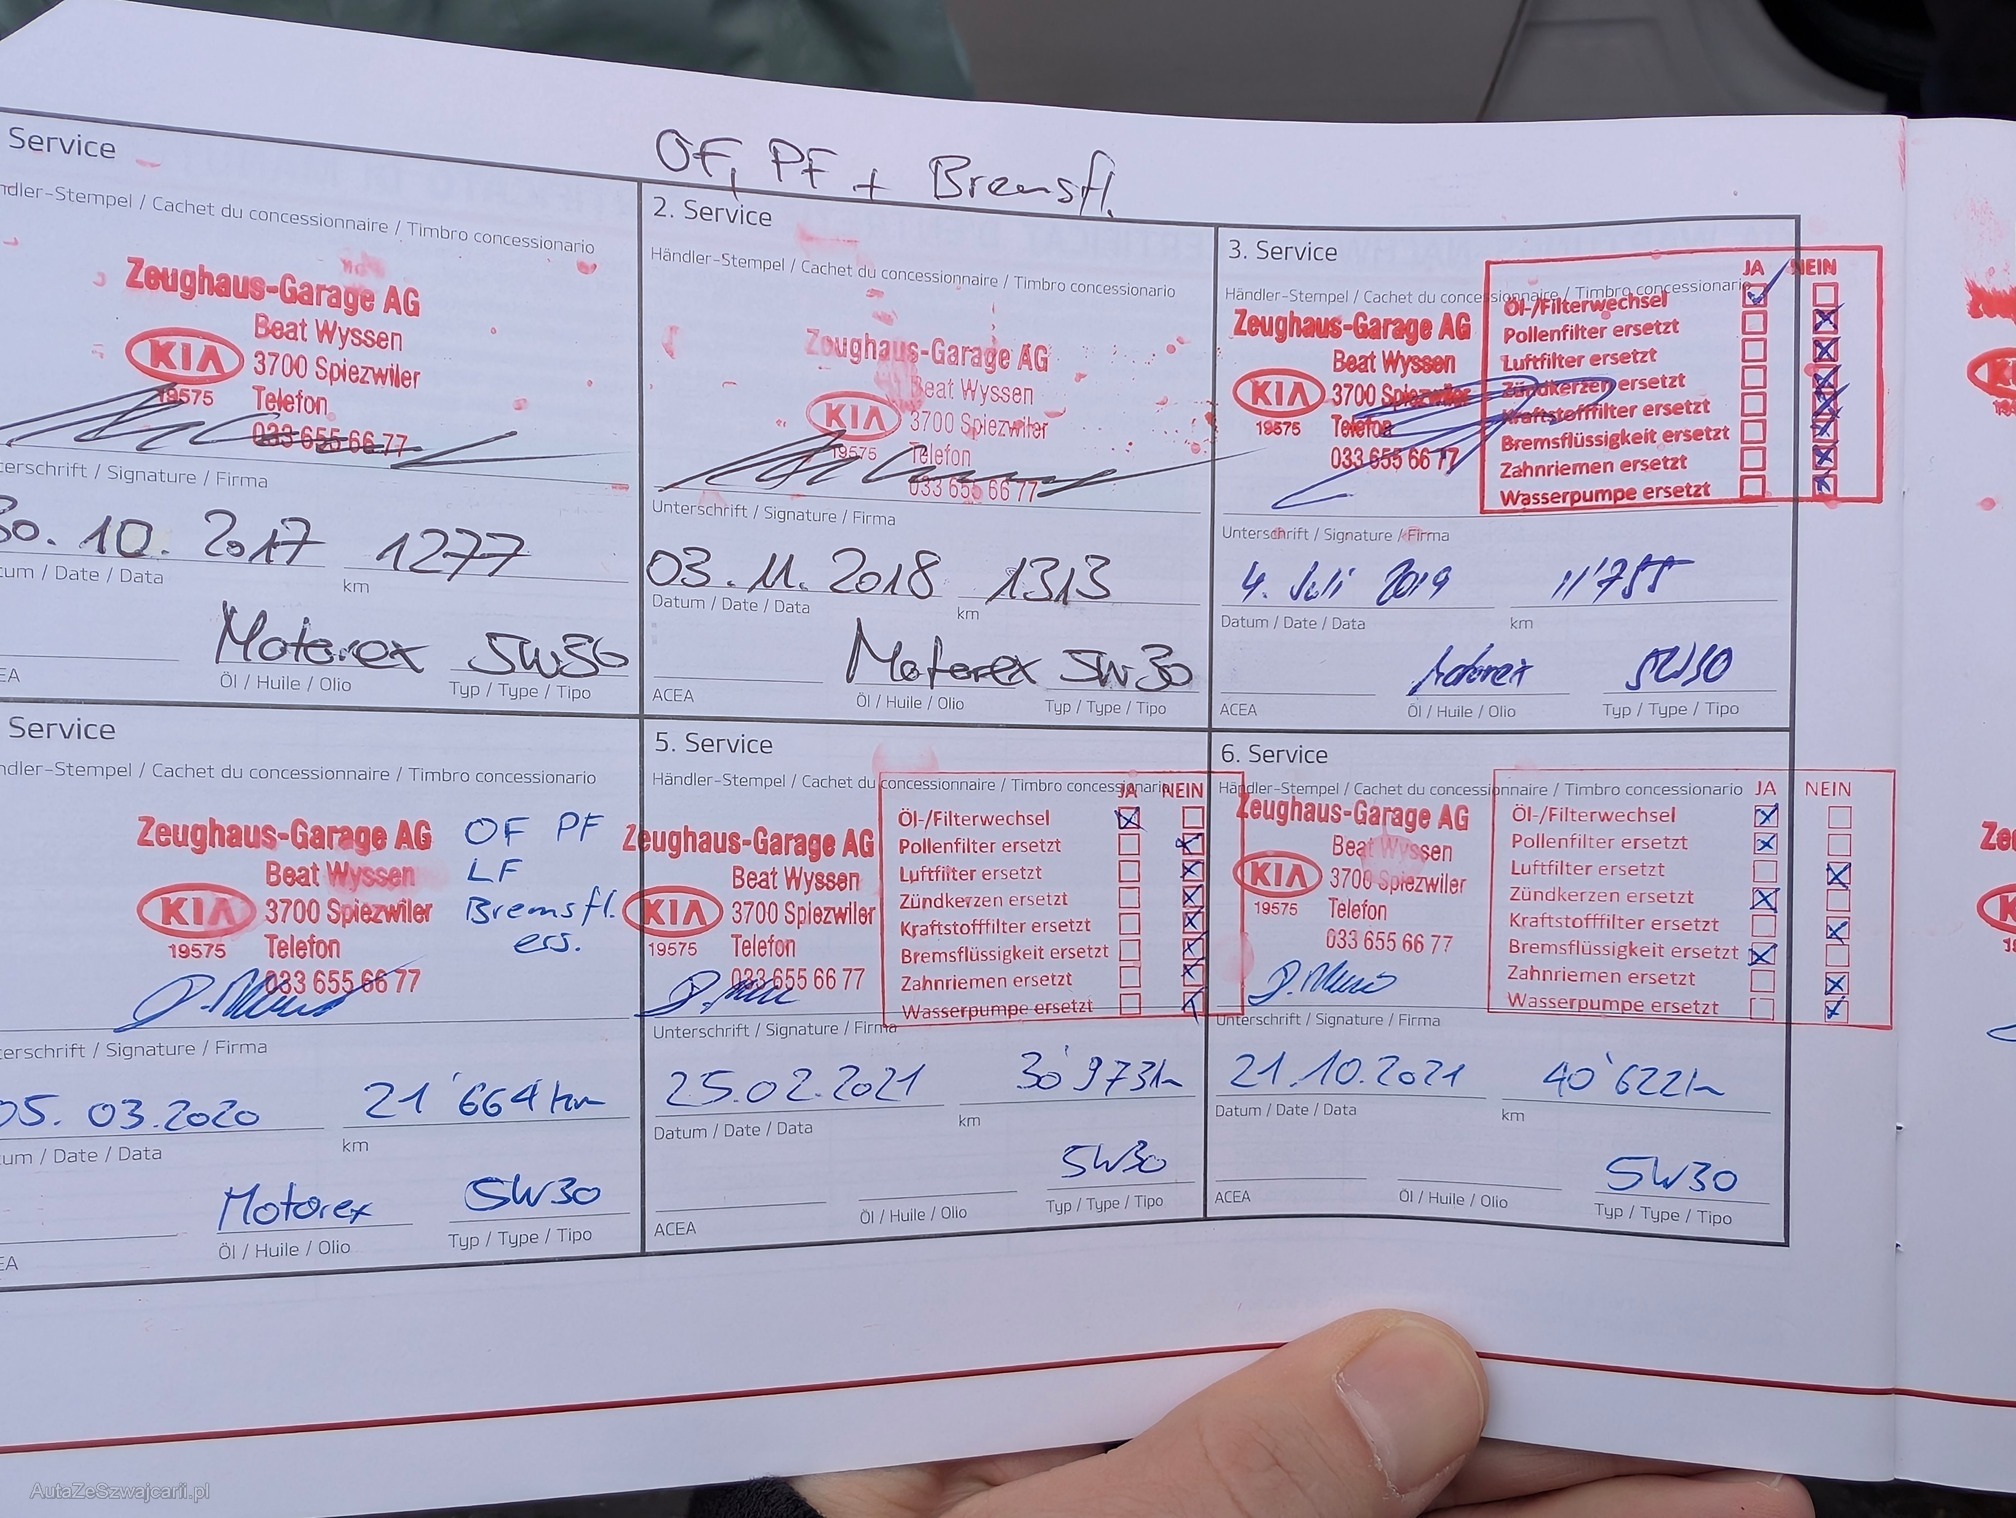 OF, PF + Bremsfl.
Service
ndler-Stempel / Cachet du concessionnaire / Timbro concessionario
Zeughaus-Garage AG
Beat Wyssen
KIA
3700 Spiezwiler
19575
Telefon
033 655 66 77
terschrift / Signature / Firma
30. 10. 2017
1277
tum / Date / Data
km
Motorex
5W30
EA
Öl / Huile / Olio
Typ / Type / Tipo
2. Service
Händler-Stempel / Cachet du concessionnaire / Timbro concessionario
Zeughaus-Garage AG
Beat Wyssen
KIA
3700 Spiezwiler
19575
Telefon
033 655 66 77
Unterschrift / Signature / Firma
03. 11. 2018
1313
Datum / Date / Data
km
Motorex
5W30
ACEA
Öl / Huile / Olio
Typ / Type / Tipo
3. Service
Händler-Stempel / Cachet du concessionnaire / Timbro concessionario
Zeughaus-Garage AG
Beat Wyssen
KIA
3700 Spiezwiler
19575
Telefon
033 655 66 77
JA NEIN
Öl-/Filterwechsel
Pollenfilter ersetzt
Luftfilter ersetzt
Zündkerzen ersetzt
Kraftstofffilter ersetzt
Bremsflüssigkeit ersetzt
Zahnriemen ersetzt
Wasserpumpe ersetzt
Unterschrift / Signature / Firma
4. Juli 2019
11'755
Datum / Date / Data
km
Motorex
5W30
ACEA
Öl / Huile / Olio
Typ / Type / Tipo
Service
ndler-Stempel / Cachet du concessionnaire / Timbro concessionario
Zeughaus-Garage AG
Beat Wyssen
KIA
3700 Spiezwiler
19575
Telefon
033 655 66 77
OF PF
LF
Bremsfl.
ers.
terschrift / Signature / Firma
05. 03. 2020
21'664 km
tum / Date / Data
km
Motorex
5W30
EA
Öl / Huile / Olio
Typ / Type / Tipo
5. Service
Händler-Stempel / Cachet du concessionnaire / Timbro concessionario
Zeughaus-Garage AG
Beat Wyssen
KIA
3700 Spiezwiler
19575
Telefon
033 655 66 77
JA NEIN
Öl-/Filterwechsel
Pollenfilter ersetzt
Luftfilter ersetzt
Zündkerzen ersetzt
Kraftstofffilter ersetzt
Bremsflüssigkeit ersetzt
Zahnriemen ersetzt
Wasserpumpe ersetzt
Unterschrift / Signature / Firma
25.02.2021
30'973km
Datum / Date / Data
km
5W30
ACEA
Öl / Huile / Olio
Typ / Type / Tipo
6. Service
Händler-Stempel / Cachet du concessionnaire / Timbro concessionario
Zeughaus-Garage AG
Beat Wyssen
KIA
3700 Spiezwiler
19575
Telefon
033 655 66 77
JA NEIN
Öl-/Filterwechsel
Pollenfilter ersetzt
Luftfilter ersetzt
Zündkerzen ersetzt
Kraftstofffilter ersetzt
Bremsflüssigkeit ersetzt
Zahnriemen ersetzt
Wasserpumpe ersetzt
Unterschrift / Signature / Firma
21.10.2021
40'622km
Datum / Date / Data
km
5W30
ACEA
Öl / Huile / Olio
Typ / Type / Tipo
AutaZeSzwajcarii.pl